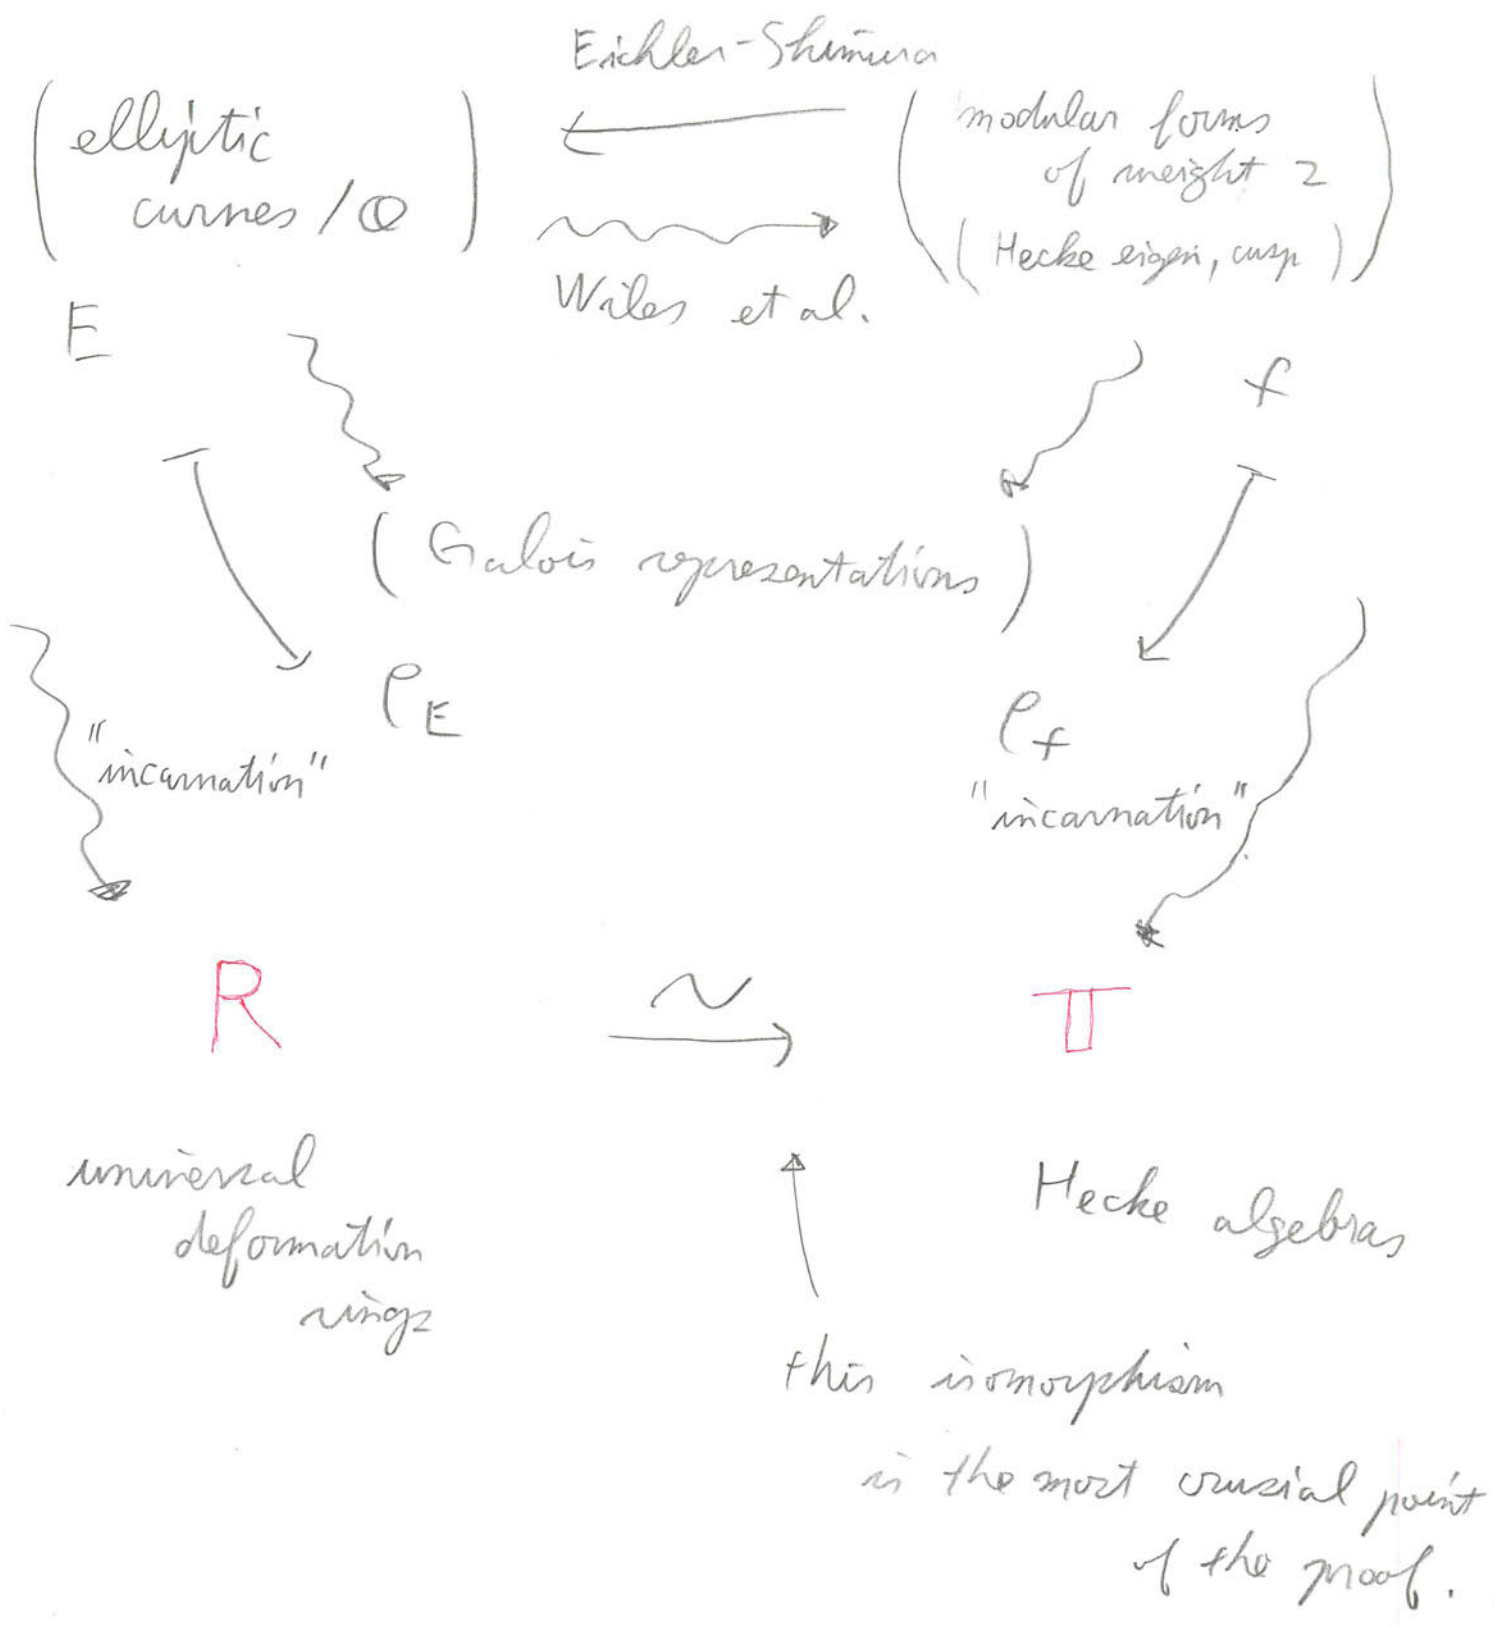 Eichler-Shimura
( elliptic
curves / Q )
( modular forms
of weight 2
( Hecke eigen, cusp ) )
Wiles et al.
E
f
( Galois representations )
ρ_E
ρ_f
"incarnation"
"incarnation"
R
~
T
universal
deformation
rings
Hecke algebras
this isomorphism
is the most crusial point
of the proof.